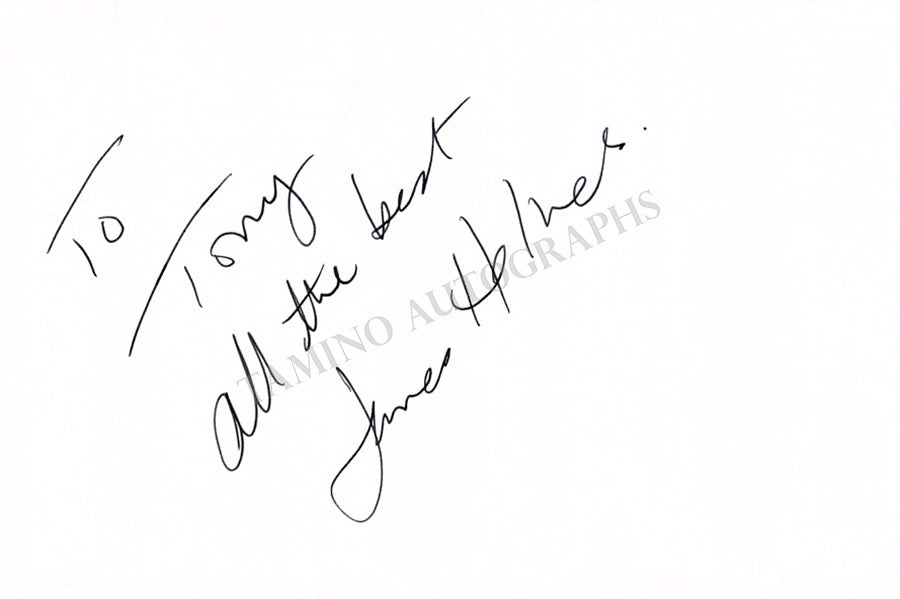 To
Tony
all the best
James Holmes.
TAMINO AUTOGRAPHS